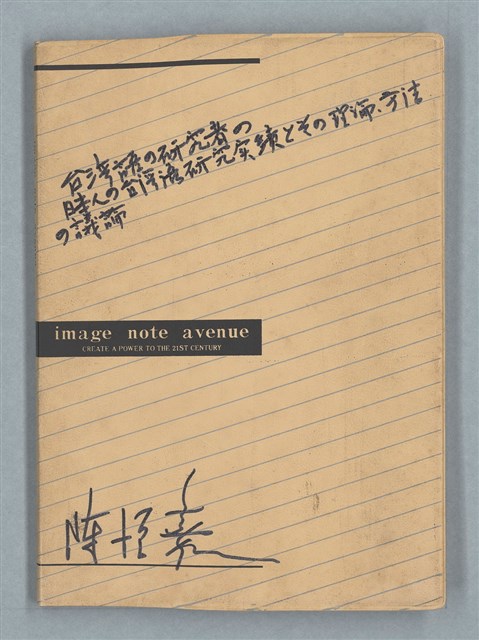 台湾語の研究者の
日本人の台湾語研究実績とその理論、方法
の議論
image note avenue
CREATE A POWER TO THE 21ST CENTURY
陳恒嘉